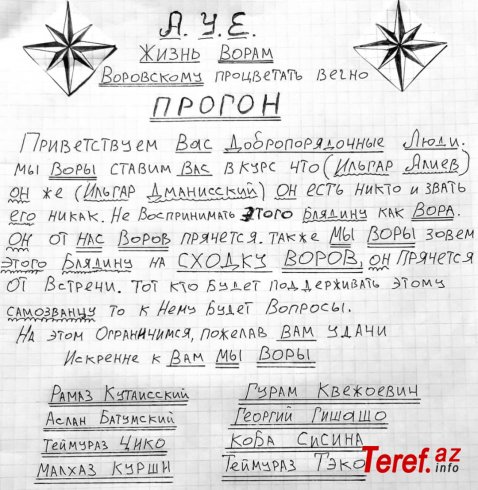 А. У. Е.
Жизнь Ворам
Воровскому процветать вечно
ПРОГОН
Приветствуем Вас Добропорядочные Люди.
мы Воры ставим Вас в курс что (Ильгар Алиев)
он же (Ильгар Дманисский) он есть никто и звать
его никак. Не Воспринимать этого Блядину как Вора.
он от нас Воров прячется. также Мы Воры зовем
этого Блядину на СХОДКУ ВОРОВ, он Прячется
от Встречи. Тот кто Будет поддерживать этому
самозванцу то к Нему Будет Вопросы.
На этом Ограничимся, пожелав ВАМ удачи
Искренне к Вам Мы Воры
Рамаз Кутаисский
Аслан Батумский
Теймураз Цико
Малхаз Курши
Гурам Квежоевич
Георгий Гишашо
Коба Сисина
Теймураз Тэко
Teref.az
info